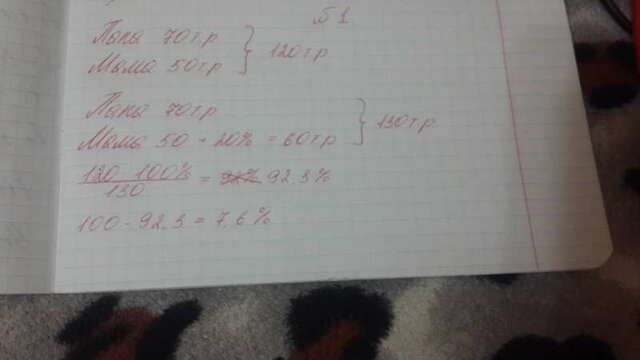 №1.
Папа 70тр
Мама 50тр } 120тр
Папа 70тр
Мама 50 + 20% = 60тр } 130тр
120 100%
130 = 92.3%
100 - 92.3 = 7.6%